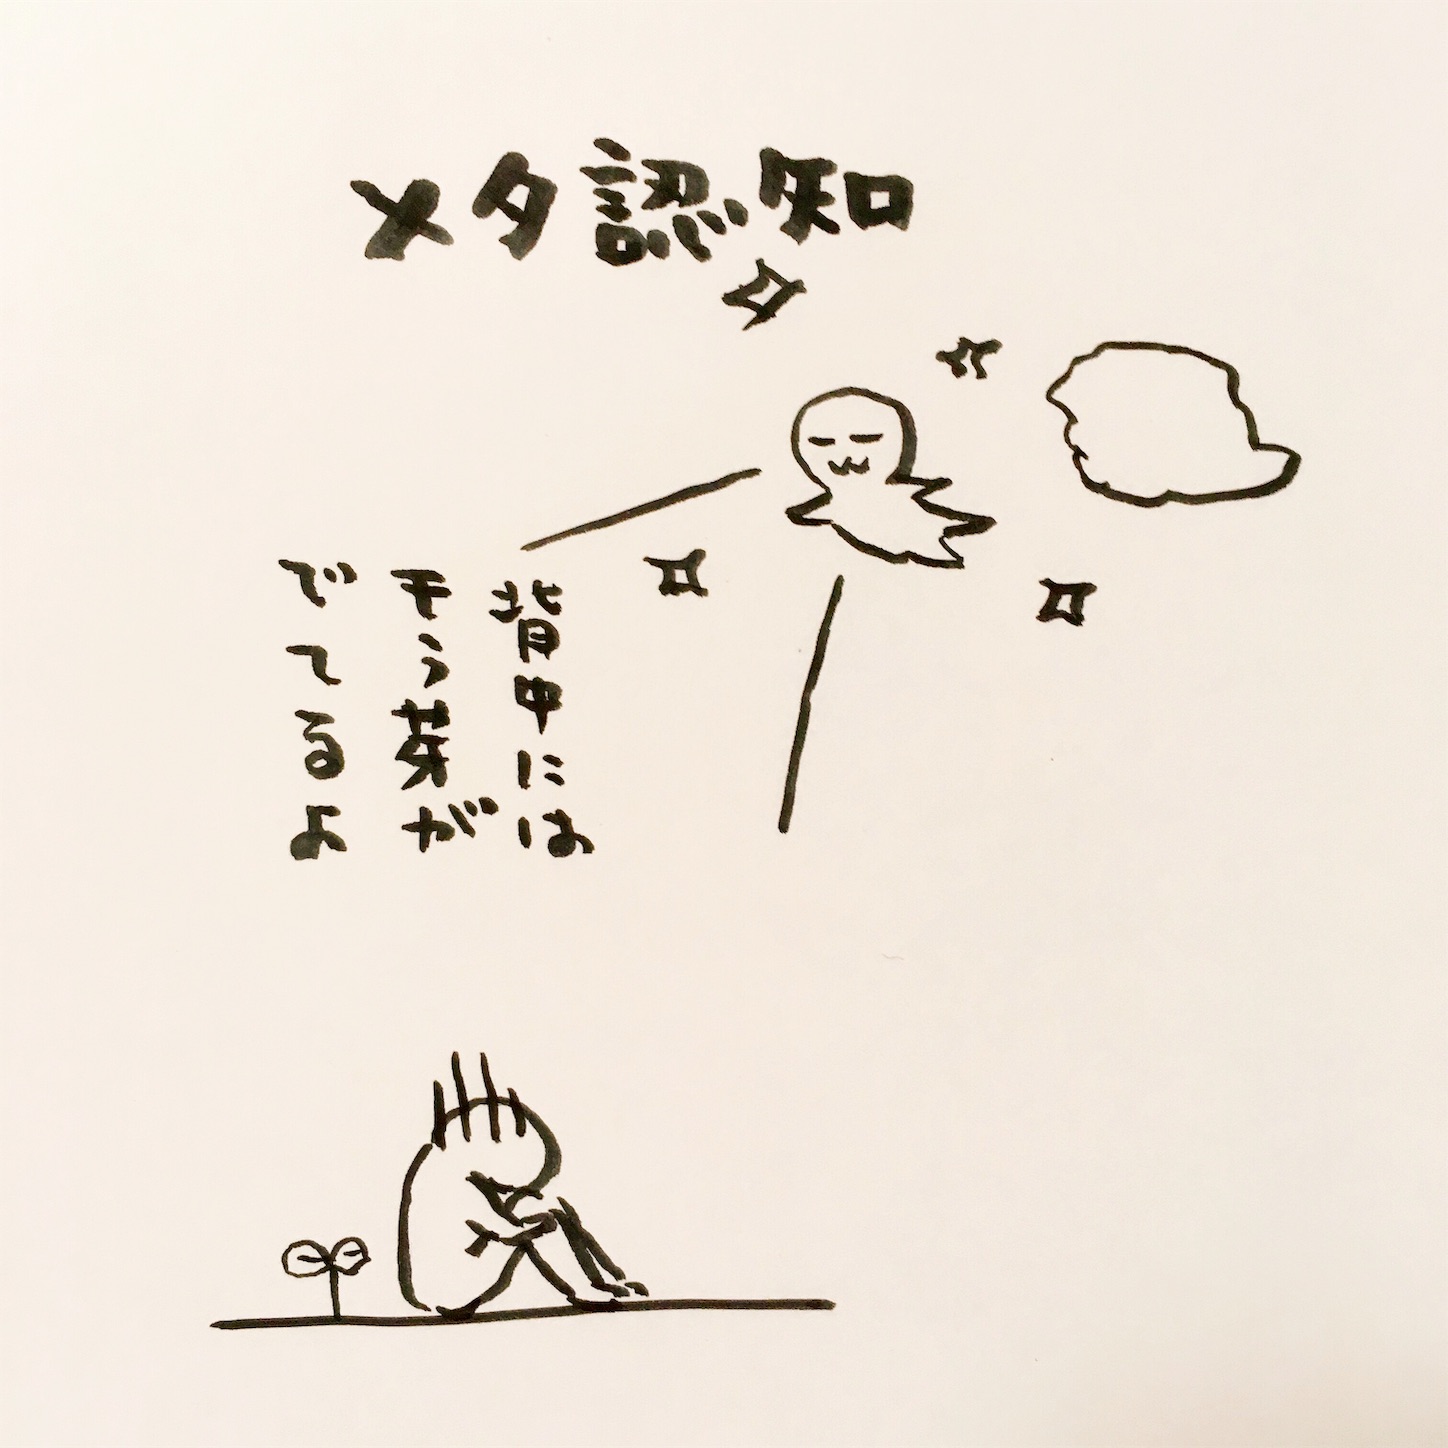 メタ認知
背中には
モう芽が
でてるよ